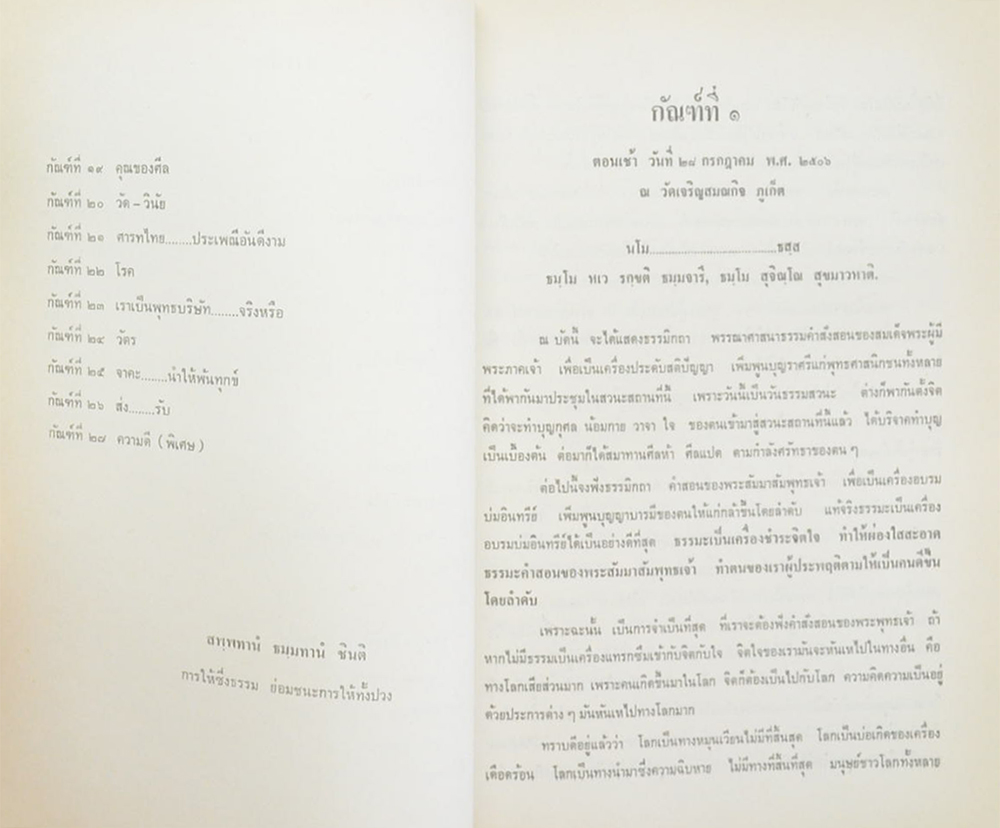 กัณฑ์ที่ ๑๙ คุณของศีล
กัณฑ์ที่ ๒๐ วัด – วินัย
กัณฑ์ที่ ๒๑ ศารทไทย........ประเพณีอันดีงาม
กัณฑ์ที่ ๒๒ โรค
กัณฑ์ที่ ๒๓ เราเป็นพุทธบริษัท........จริงหรือ
กัณฑ์ที่ ๒๔ วัตร
กัณฑ์ที่ ๒๕ จาคะ........นำให้พ้นทุกข์
กัณฑ์ที่ ๒๖ ส่ง........รับ
กัณฑ์ที่ ๒๗ ความดี ( พิเศษ )
สพฺพทานํ ธมฺมทานํ ชินติ
การให้ซึ่งธรรม ย่อมชนะการให้ทั้งปวง
กัณฑ์ที่ ๑
ตอนเช้า วันที่ ๒๘ กรกฎาคม พ.ศ. ๒๕๐๖
ณ วัดเจริญสมณกิจ ภูเก็ต
นโม........................................ธสฺส
ธมฺโม หเว รกฺขติ ธมฺมจารึ, ธมฺโม สุจิณฺโณ สุขมาวหาติ.
ณ บัดนี้ จะได้แสดงธรรมิกถา พรรณาศาสนาธรรมคำสั่งสอนของสมเด็จพระผู้มี
พระภาคเจ้า เพื่อเป็นเครื่องประดับสติปัญญา เพิ่มพูนบุญราศรีแก่พุทธศาสนิกชนทั้งหลาย
ที่ได้พากันมาประชุมในสวนะสถานที่นี้ เพราะวันนี้เป็นวันธรรมสวนะ ต่างก็พากันตั้งจิต
คิดว่าจะทำบุญกุศล น้อมกาย วาจา ใจ ของตนเข้ามาสู่สวนะสถานที่นี้แล้ว ได้บริจาคทำบุญ
เป็นเบื้องต้น ต่อมาก็ได้สมาทานศีลห้า ศีลแปด ตามกำลังศรัทธาของตน ๆ
ต่อไปนี้จงฟังธรรมิกถา คำสอนของพระสัมมาสัมพุทธเจ้า เพื่อเป็นเครื่องอบรม
บ่มอินทรีย์ เพิ่มพูนบุญญาบารมีของตนให้แก่กล้าขึ้นโดยลำดับ แท้จริงธรรมะเป็นเครื่อง
อบรมบ่มอินทรีย์ได้เป็นอย่างดีที่สุด ธรรมะเป็นเครื่องชำระจิตใจ ทำให้ผ่องใสสะอาด
ธรรมะคำสอนของพระสัมมาสัมพุทธเจ้า ทำตนของเราผู้ประพฤติตามให้เป็นคนดีขึ้น
โดยลำดับ
เพราะฉะนั้น เป็นการจำเป็นที่สุด ที่เราจะต้องฟังคำสั่งสอนของพระพุทธเจ้า ถ้า
หากไม่มีธรรมเป็นเครื่องแทรกซึมเข้ากับจิตกับใจ จิตใจของเรามันจะหันเหไปในทางอื่น คือ
ทางโลกเสียส่วนมาก เพราะคนเกิดขึ้นมาในโลก จิตก็ต้องเป็นไปกับโลก ความคิดความเป็นอยู่
ด้วยประการต่าง ๆ มันหันเหไปทางโลกมาก
ทราบดีอยู่แล้วว่า โลกเป็นทางหมุนเวียนไม่มีที่สิ้นสุด โลกเป็นบ่อเกิดของเครื่อง
เดือดร้อน โลกเป็นทางนำมาซึ่งความฉิบหาย ไม่มีทางที่สิ้นที่สุด มนุษย์ชาวโลกทั้งหลาย